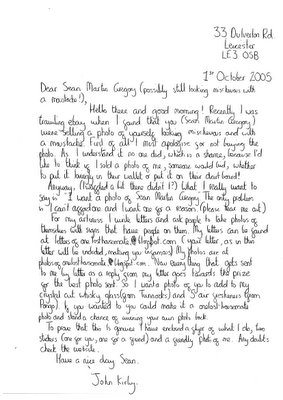 33 Dulverton Rd
Leicester
LE3 0SB
1st October 2005
Dear Sean Martin Gregory (possibly still looking mischievous with
a moustache!),
Hello there and good morning! Recently I was
trawling ebay when I found that you (Sean Martin Gregory)
were selling a photo of yourself looking mischievous and with
a moustache. First of all I must apologise for not buying the
photo. As I understand it no one did, which is a shame, because I'd
like to think if I sold a photo of me, someone would find, whether
to put it lovingly in their wallet or put it on their dart board!
Anyway, (I waffled a bit there didn't I?) what I really want to
say is - I want a photo of Sean Martin Gregory. The only problem
is - I can't afford one and I want one for a reason. (please hear me out)
For my art I write letters and ask people to take photos of
themselves with signs that have people on them. My letters can be found
at .blogspot.com (your letter, as in this
letter will be included, making you infamous) My photos are at
.blogspot.com. Now everything that gets sent
to me by letter as a reply from my letter goes towards the prize
for the best photo sent. So I want photo of you to add to my
crystal cut whisky glass (from Tunnocks) and 5 air fresheners (from
). If you wanted to you could make it a
photo and stand a chance of winning your own photo back.
To prove that this is genuine I have enclosed a of what I do, two
stickers (one for you, one for a friend) and a friendly photo of me. Any doubts
check the website.
Have a nice day Sean.
John Kirby.